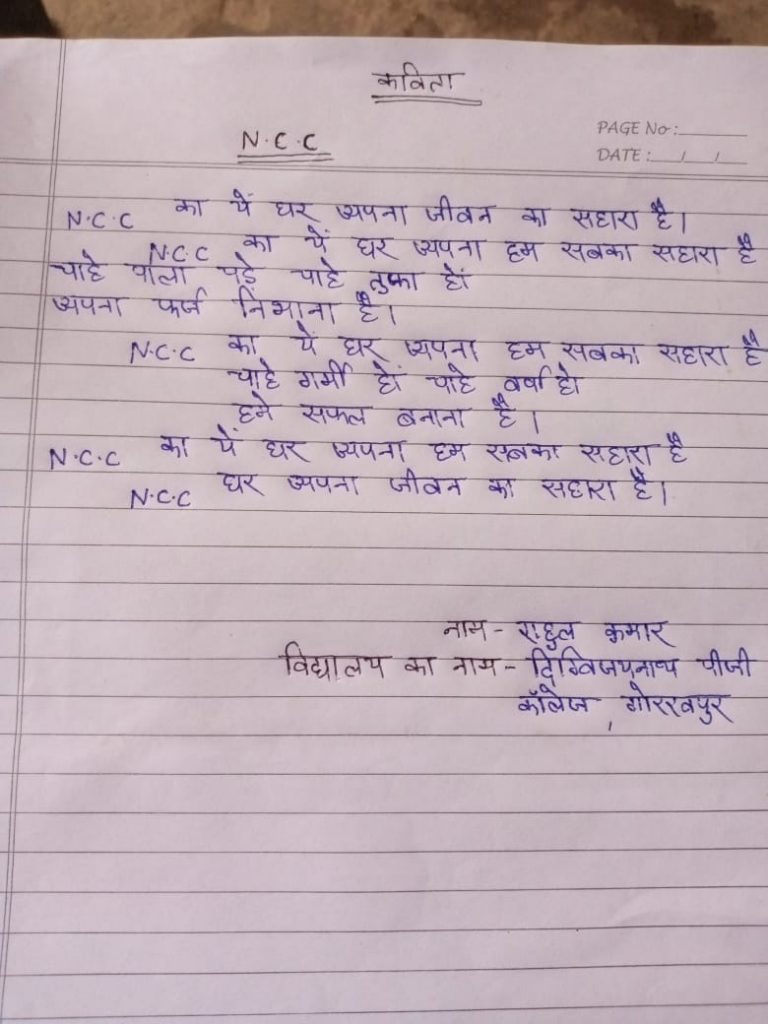 कविता
N.C.C
PAGE No:
DATE: / /
N.C.C का यें घर अपना जीवन का सहारा है।
N.C.C का यें घर अपना हम सबका सहारा है
चाहे पाला पड़े चाहे तुफा हों
अपना फर्ज निभाना है।
N.C.C का यें घर अपना हम सबका सहारा है
चाहे गर्मी हों चाहे वर्षा हो
हमे सफल बनाना है।
N.C.C का यें घर अपना हम सबका सहारा है
N.C.C घर अपना जीवन का सहारा है।
नाम - राहुल कुमार
विद्यालय का नाम - दिग्विजयनाथ पीजी
कॉलेज, गोरखपुर